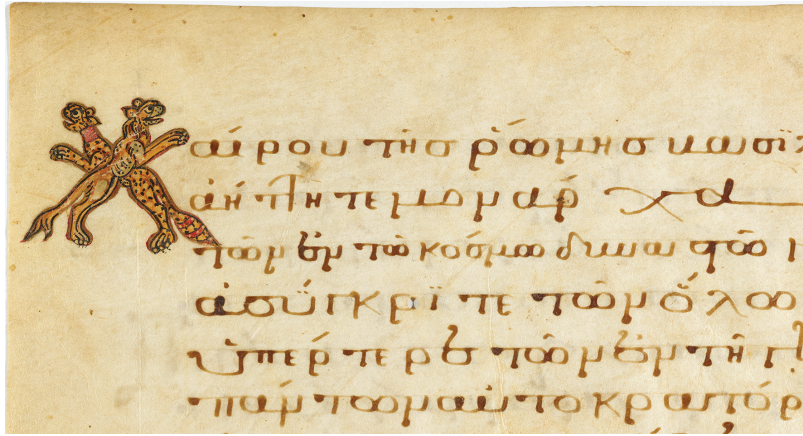 Χαίρου τῆς ῥώμης βασϊ
ἀήττητε μονάρχα
τῶν ἐν τῶ κόσμω
ἀσύγκρϊτε τῶν ὅλω
ὑπέρτερε τῶν ἐν τῆ
πάντων αὐτοκρατόρ